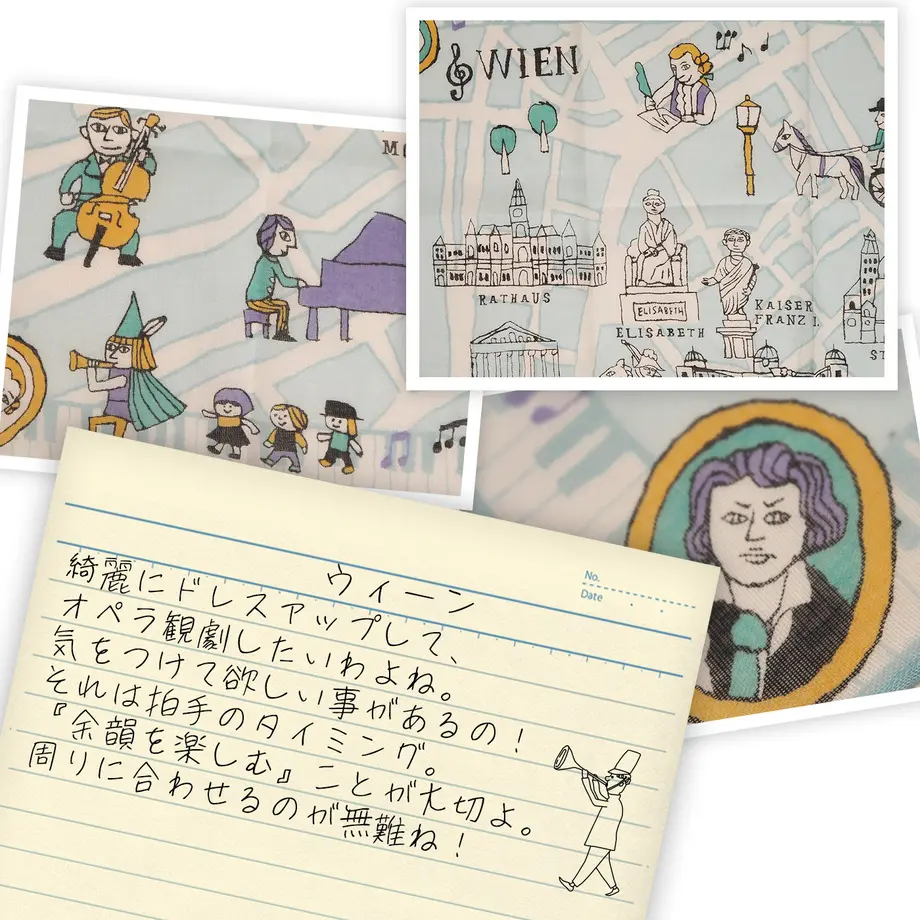 WIEN
RATHAUS
ELISABETH
ELISABETH
KAISER
FRANZ I.
No.
Date
ウィーン
綺麗にドレスアップして、
オペラ観劇したいわよね。
気をつけて欲しい事があるの!
それは拍手のタイミング。
『余韻を楽しむ』ことが大切よ。
周りに合わせるのが無難ね!